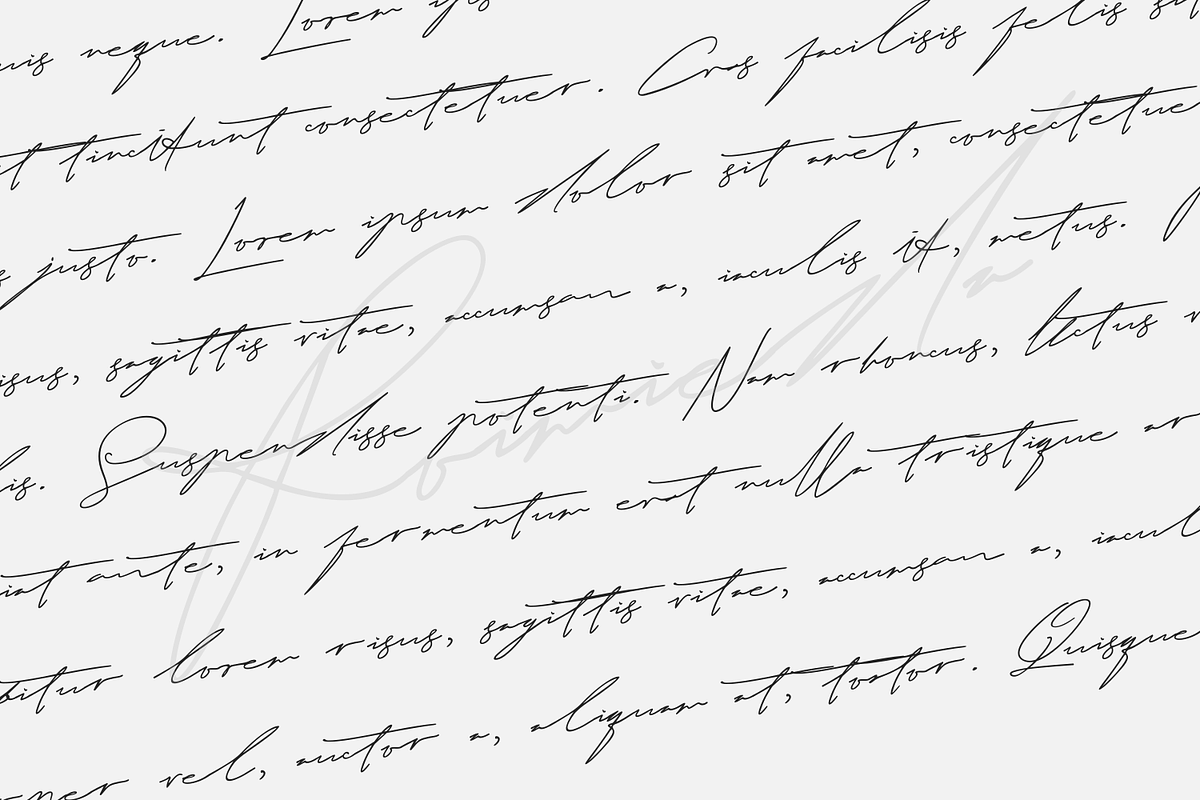 uis neque. Lorem ips
it tincidunt consectetuer. Cras facilisis felis sit
s justo. Lorem ipsum dolor sit amet, consectetue
isus, sagittis vitae, accumsan a, iaculis id, metus.
lis. Suspendisse potenti. Nam rhoncus, lectus
iat ante, in fermentum erat nulla tristique ar
bitur lorem risus, sagittis vitae, accumsan a, iacul
per vel, auctor a, aliquam at, tortor. Quisque